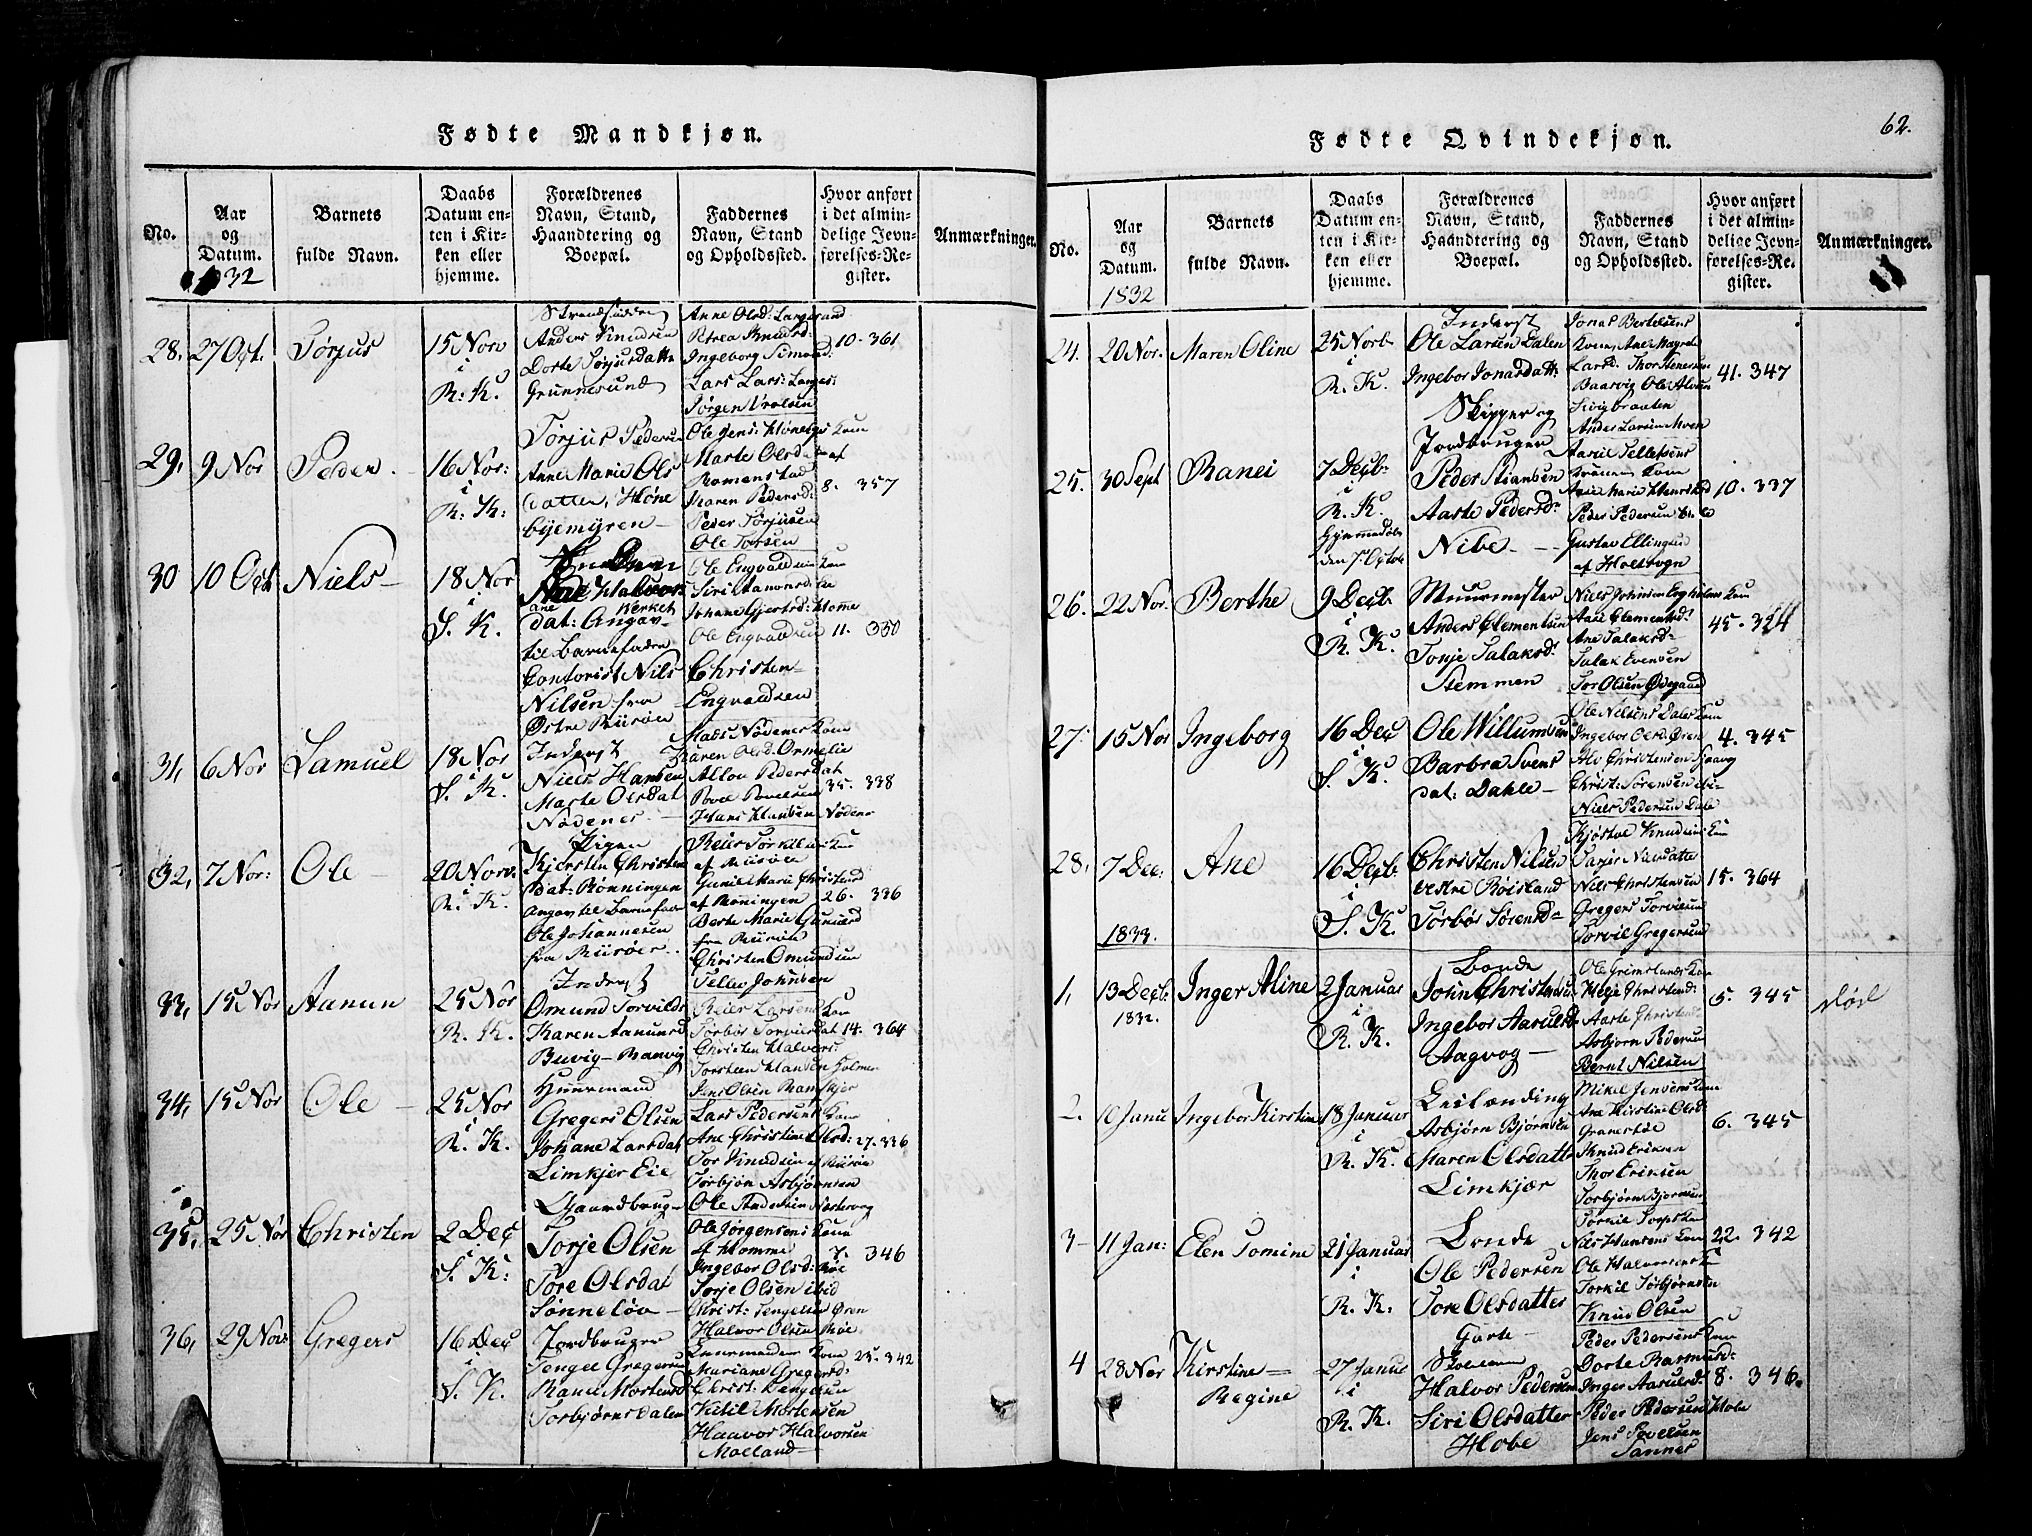 62.
Fødte Mandkjøn.
No.
Aar
og
Datum.
1832
Barnets
fulde Navn.
Daabs
Datum en-
ten i Kir-
ken eller
hjemme.
Forældrenes
Navn, Stand,
Haandtering og
Boepæl.
Faddernes
Navn, Stand
og Opholdssted.
Hvor anført
i det almin-
delige Jevn-
førelses-Re-
gister.
Anmærkninger.
28, 27 Oct. Tørjus
15 Nov
i
R. K.
Anders Knudsen
Dorte Tørjusdatter
Grunnesund
Anne Olsd:
Petrea Knudsd:
Ingeborg Simonsd:
Lars Lars:
Jørgen
10. 361
29, 9 Nov Peder
16 Nov:
i
R. K.
Tørjus Pedersen
Anne Marie Ols
datter, Høne
byemyren
Ole Jens: Kone
Marte Olsd
Romenstad
Karen Pedersd:
Peder Tørjusen
Ole Torsen
8. 357
30 10 Oct Niels
18 Nov
i
S. K.
dat: Angav
til Barnefader
Contorist Nils
Nilsen fra
Østre Riisøer
Ole Engvaldsen Kone
Johane Gjertsd: Homme
Ole Engvaldsen
Christen
Engvaldsen
11. 330
31, 6 Nov Samuel
18 Nov
S. K.
Inderst
Niels Hansen
Marte Olsdat
Nødenes
Mads Nødenes Kone
Karen Olsd: Ormelie
Povel Povelsen
Hans Hansen Nødenes
35. 338
32, 7 Nov: Ole
20 Nov:
i
R. K.
Pigen
Kjersten Christen
dat: Rønningen
Angav til Barnefader
Ole Johannesen
fra Riisøer.
Reier Torkilsens Kone
af Riisøen
Gunil Marie Christensd
af Røningen
Berte Marie Gunersd
fra Riisøen
Christen Omundsen
Tellev Johnsen
26. 336
33, 15 Nov Aanun
25 Nov
i
R. K.
Inderst
Omund Torvilds
Karen Aanunsd
Buvig Ranvig
Reier Larsens Kone
Torbør Torvilsdat
Christen Halvors:
Torsteen Hansen Holmen
14. 364
34, 15 Nov Ole
25 Nov
i
R. K.
Huusmand
Gregers Olsen
Johane Larsdat
Limkjer Eie
Jens Olsen Ramskjer
Lars Pedersens Kone
Ane Christine Olsd:
Tor Knudsen af Riisøen
Torbjøn Asbjørnsen
27. 336
35, 25 Nov Christen
2 Dec
i
S. K:
Gaardbrug
Torje Olsen
Tore Olsdat
Sønneløv
Ole Jørgensens Kone
af Homme
Ingebor Olsd: Røe
Torje Olsen ibid
Christ: Tengelsen Øren
Halvor Olsen Røe
7. 346
36, 29 Nov: Gregers
16 Dec
i
S. K.
Jordbruger
Tengel Gregersen
Rani Mortensd
Torbjørnsdalen
Mariane Gregersd:
Christ: Tengelsen
Ketil Mortensen
Haavor Halvorsen
Molland
25. 342
Fødte Qvindekjøn.
No.
Aar
og
Datum.
1832
Barnets
fulde Navn.
Daabs
Datum en-
ten i Kir-
ken eller
hjemme.
Forældrenes
Navn, Stand,
Haandtering og
Boepæl.
Faddernes
Navn, Stand
og Opholdssted.
Hvor anført
i det almin-
delige Jevn-
førelses-Re-
gister.
Anmærkninger.
24. 20 Nov. Maren Oline
25 Novb.
i
R. K.
Inderst
Ole Larsen Dalen
Ingebor Jonasdatt:
Jonas Bertelsens
Kone, Ane Magrete
Larsd. Thor Stenersen
Baarvig Ole Alvsen
Anders Larsen Moen
41. 347
25. 30 Sept Ranei
7 Decb.
i
R. K.
Hjemmedøbt
den 7 Octob
Skipper og
Jordbruger
Peder Stiansen
Aaste Pedersd:
Nibe
Aasil Telletsens
Kone
Ane Marie Henriksd
Peder Pedersen
Gustav Ellingsen
af Holt Sogn
10. 337
26. 22 Nov. Berthe
9 Decb.
i
R. K.
Muurmester
Anders Clementsen
Tonje Salaksd:
Stemmen
Niels Johnsen Kone
Aase Clementsd:
Ane Salaksd
Salak Evensen
Tor Olsen Ødegaard
45. 324
27. 15 Nov Ingeborg
16 Dec
i
S. K.
Ole Willumsen
Barbra Svens
dat: Dahle
Ole Nilsens Dales Kone
Ingebor Olsd: Øren
Christ: Sørensen
Niels Pedersen Dale
4. 345
28, 7 Dec: Ane
16 Decb
i
S. K.
Christen Nilsen
vestre Røisland
Torbør Sørensd
Kjøstve Knudsens Kone
Tarjer Nilsdatter
Nils Christensen
Gregers Torvilsen
Torvil Gregersen
15. 364
1833.
1, 13 Decb. Inger Aline
1832.
2 Januar
i
R. K.
Bonde
John Christensen
Ingebor Aasulsd
Aagvog
Ole Grimslands Kone
Helje Christensd:
Aaste Christensd
Asbjørn Pedersen
Bernt Nilsen
5. 345
død
2. 10 Janu Ingebor Kirstine
18 Januar
i
R. K.
Leilænding
Asbjørn Bjørnsen
Maren Olsdatter
Limkjær
Mikel Jensens Kone
Ane Kirstine Olsd:
Granestøe
Knud Eriksen
Thor Eriksen
Torbjørn Bjørnsen
6. 345
3 11 Jan: Elen Tomine
21 Januar
i
R. K.
Bonde
Ole Pedersen
Tore Olsdatter
Garte
Nils Hansens Kone
Ole Halvorsens K
Torkil Torbjørnsen
Knud Olsen
22. 342
4 28 Nov Kirstine
Regine
27 Januar
i
R. K.
Halvor Pedersen
Siri Olsdatter
Hobe
Peder Pedersens Kone
Dorte Rasmusd:
Inger Aasulsd:
Peder Pedersen Hobe
Jens Povelsen
Sannes
8. 346.